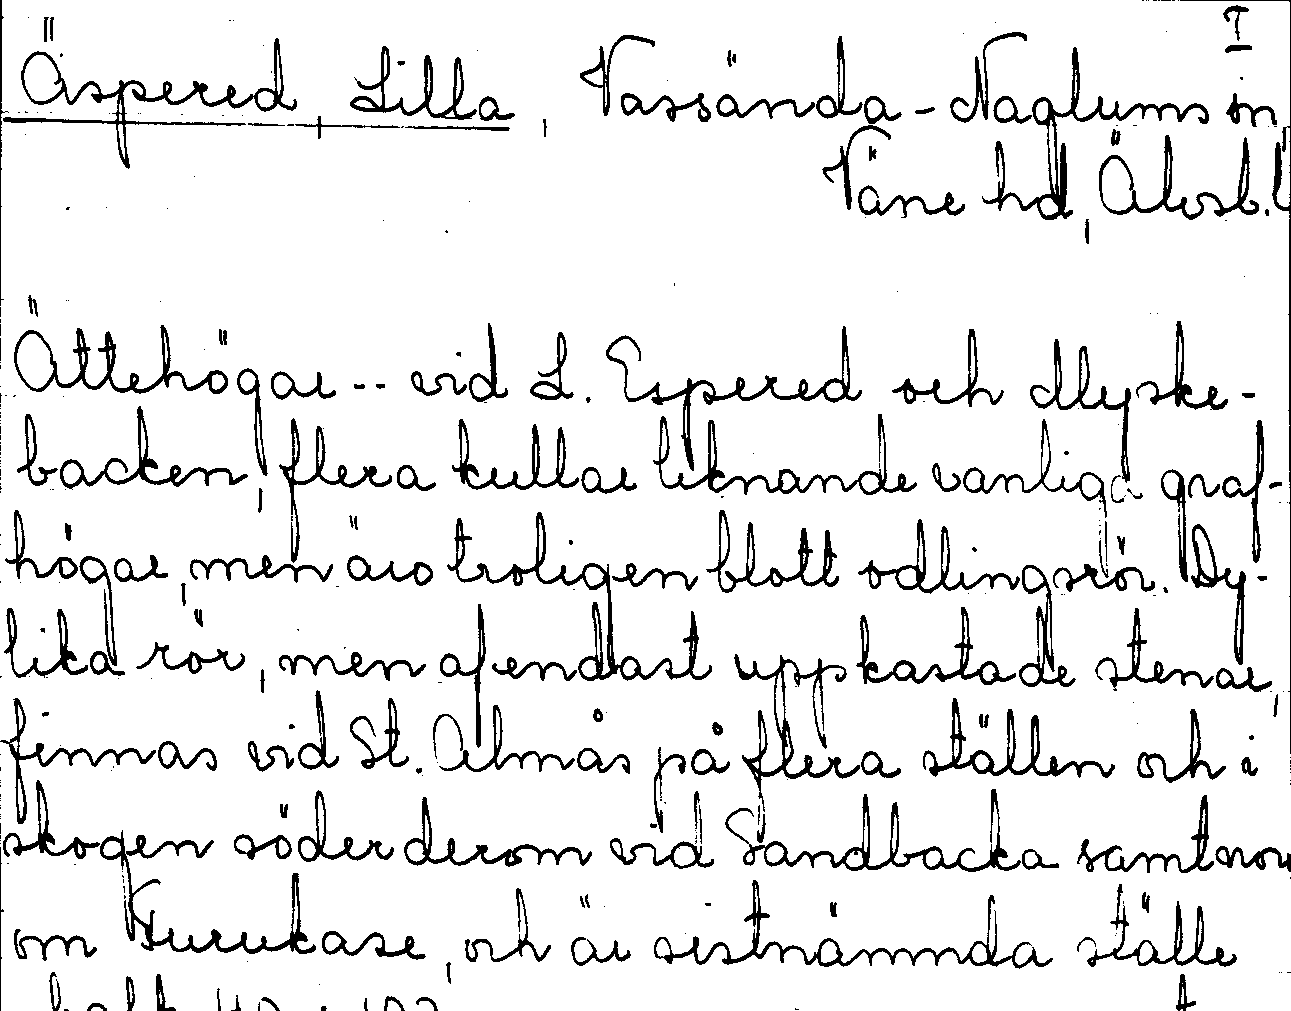 I
Äspered, Lilla, Vassända-Naglums sn
Väne hd, Älvsb.l
Ättehögar -- vid L. Espered och Myske-
backen, flera kullar liknande vanliga graf-
högar, men äro troligen blott odlingsrör. Dy-
lika rör, men af endast uppkastade stenar,
finnas vid St. Almås på flera ställen och i
skogen söder derom vid Sandbacka samt norr
om Furukase, och är sistnämnda ställe